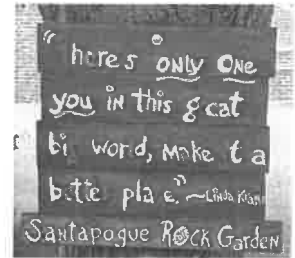 “ heres only one
you in this g eat
bi word, make t a
bette pla e.” ~Linda
Santapogue Rock Garden